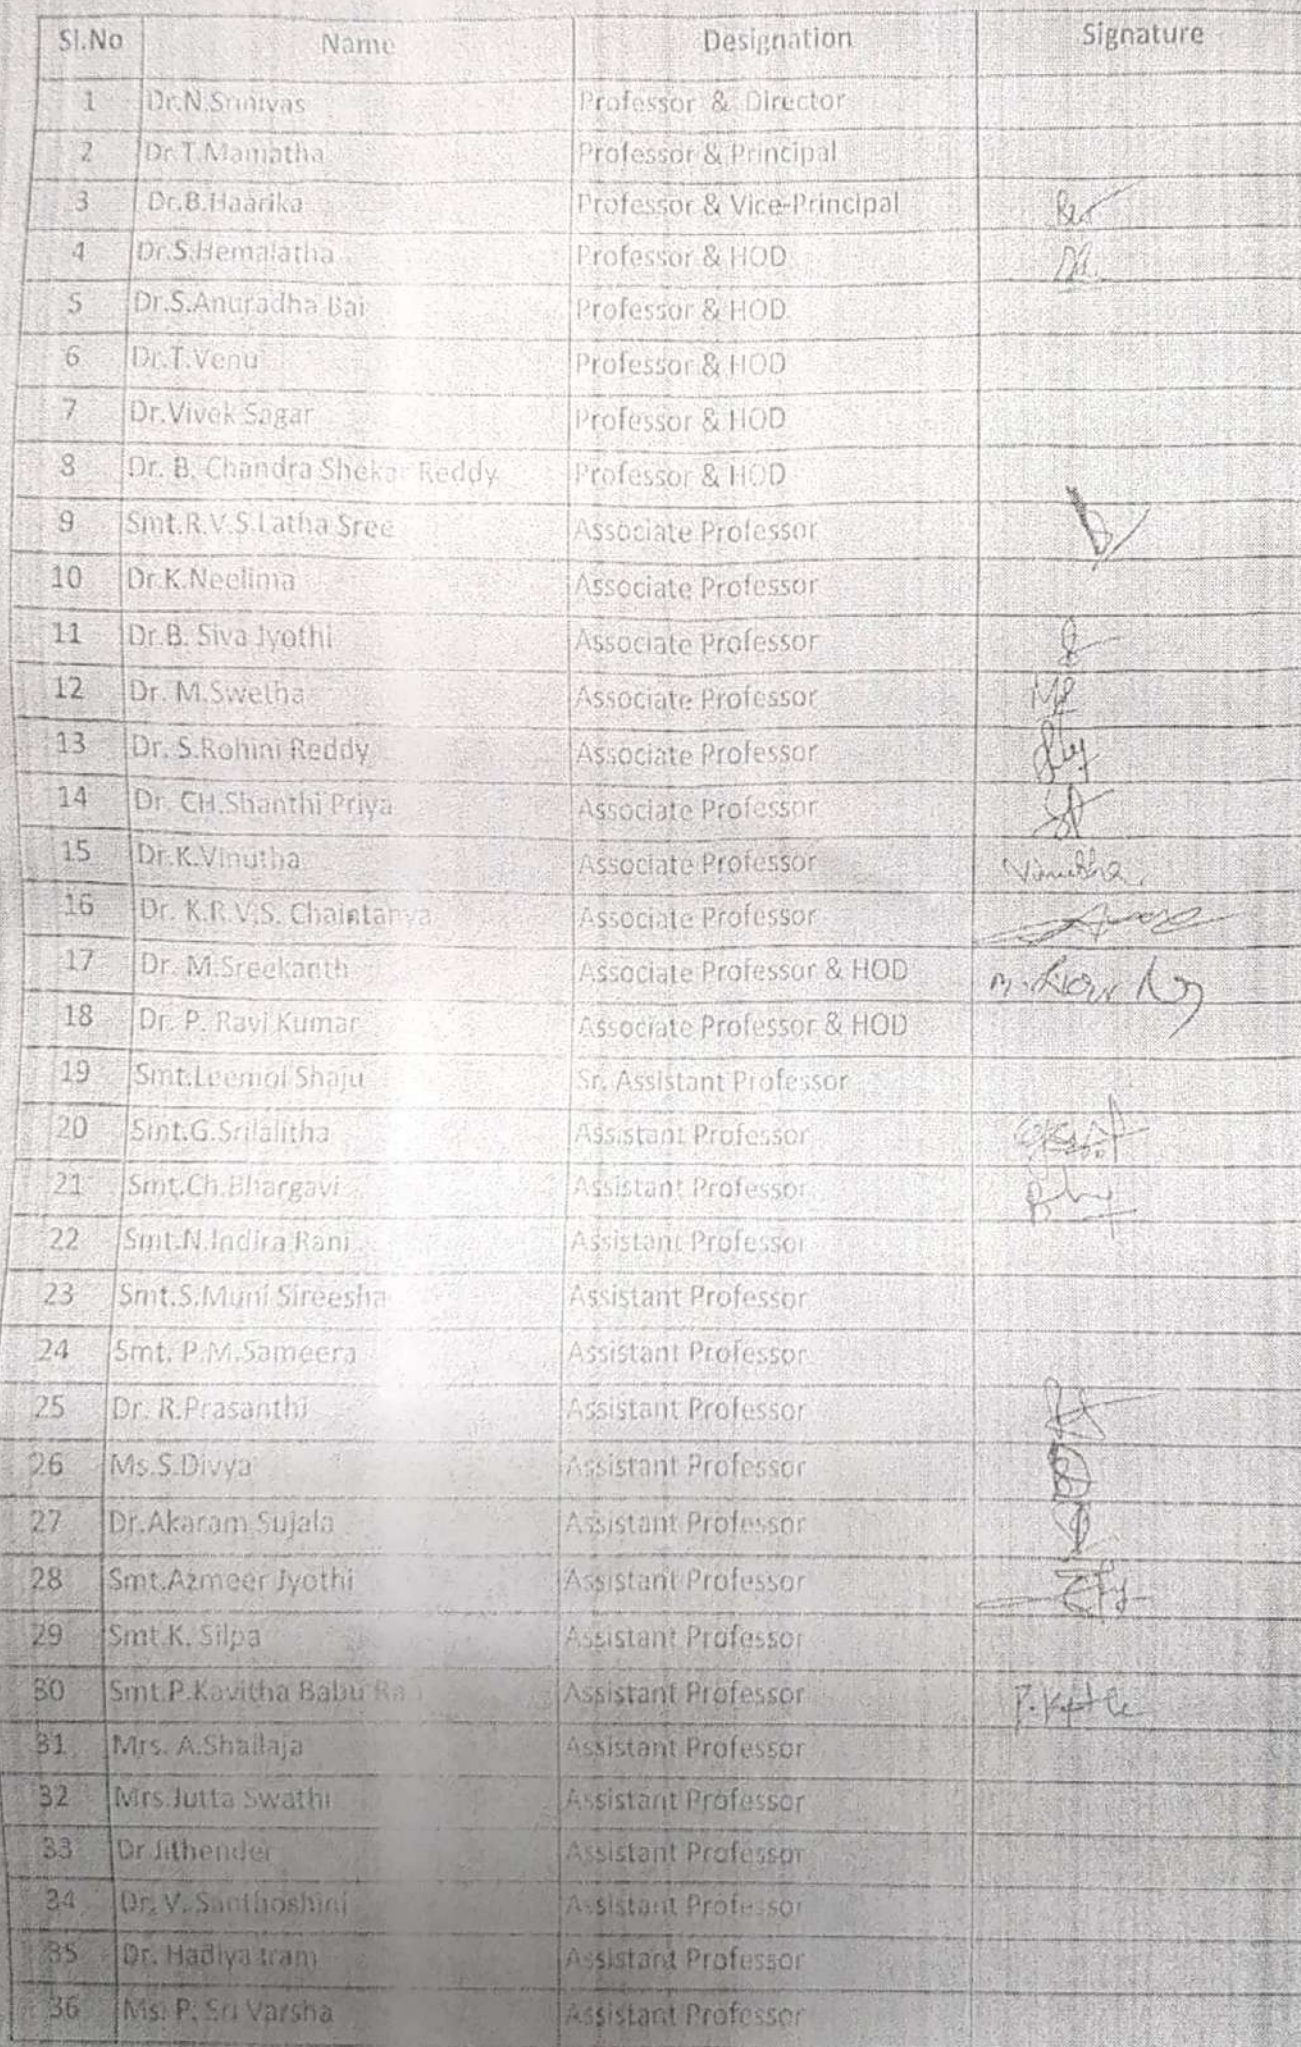 Sl.No Name Designation Signature
1 Dr.N.Srinivas Professor & Director
2 Dr.T.Mamatha Professor & Principal
3 Dr.B.Haarika Professor & Vice-Principal
4 Dr.S.Hemalatha Professor & HOD
5 Dr.S.Anuradha Bai Professor & HOD
6 Dr.T.Venu Professor & HOD
7 Dr.Vivek Sagar Professor & HOD
8 Dr. B. Chandra Shekar Reddy Professor & HOD
9 Smt.R.V.S.Latha Sree Associate Professor
10 Dr.K.Neelima Associate Professor
11 Dr.B. Siva Jyothi Associate Professor
12 Dr. M.Swetha Associate Professor
13 Dr. S.Rohini Reddy Associate Professor
14 Dr. CH.Shanthi Priya Associate Professor
15 Dr.K.Vinutha Associate Professor Vinutha
16 Dr. K.R.V.S. Chaintanya Associate Professor
17 Dr. M.Sreekanth Associate Professor & HOD
18 Dr. P. Ravi Kumar Associate Professor & HOD
19 Smt.Leemol Shaju Sr. Assistant Professor
20 Smt.G.Srilalitha Assistant Professor
21 Smt.Ch.Bhargavi Assistant Professor
22 Smt.N.Indira Rani Assistant Professor
23 Smt.S.Muni Sireesha Assistant Professor
24 Smt. P.M.Sameera Assistant Professor
25 Dr. R.Prasanthi Assistant Professor
26 Ms.S.Divya Assistant Professor
27 Dr.Akaram Sujala Assistant Professor
28 Smt.Azmeer Jyothi Assistant Professor
29 Smt.K. Silpa Assistant Professor
30 Smt.P.Kavitha Babu Assistant Professor
31 Mrs. A.Shailaja Assistant Professor
32 Mrs.Jutta Swathi Assistant Professor
33 Dr Jithender Assistant Professor
34 Dr. V. Santhoshini Assistant Professor
35 Dr. Hadiya Iram Assistant Professor
36 Ms. P. Sri Varsha Assistant Professor